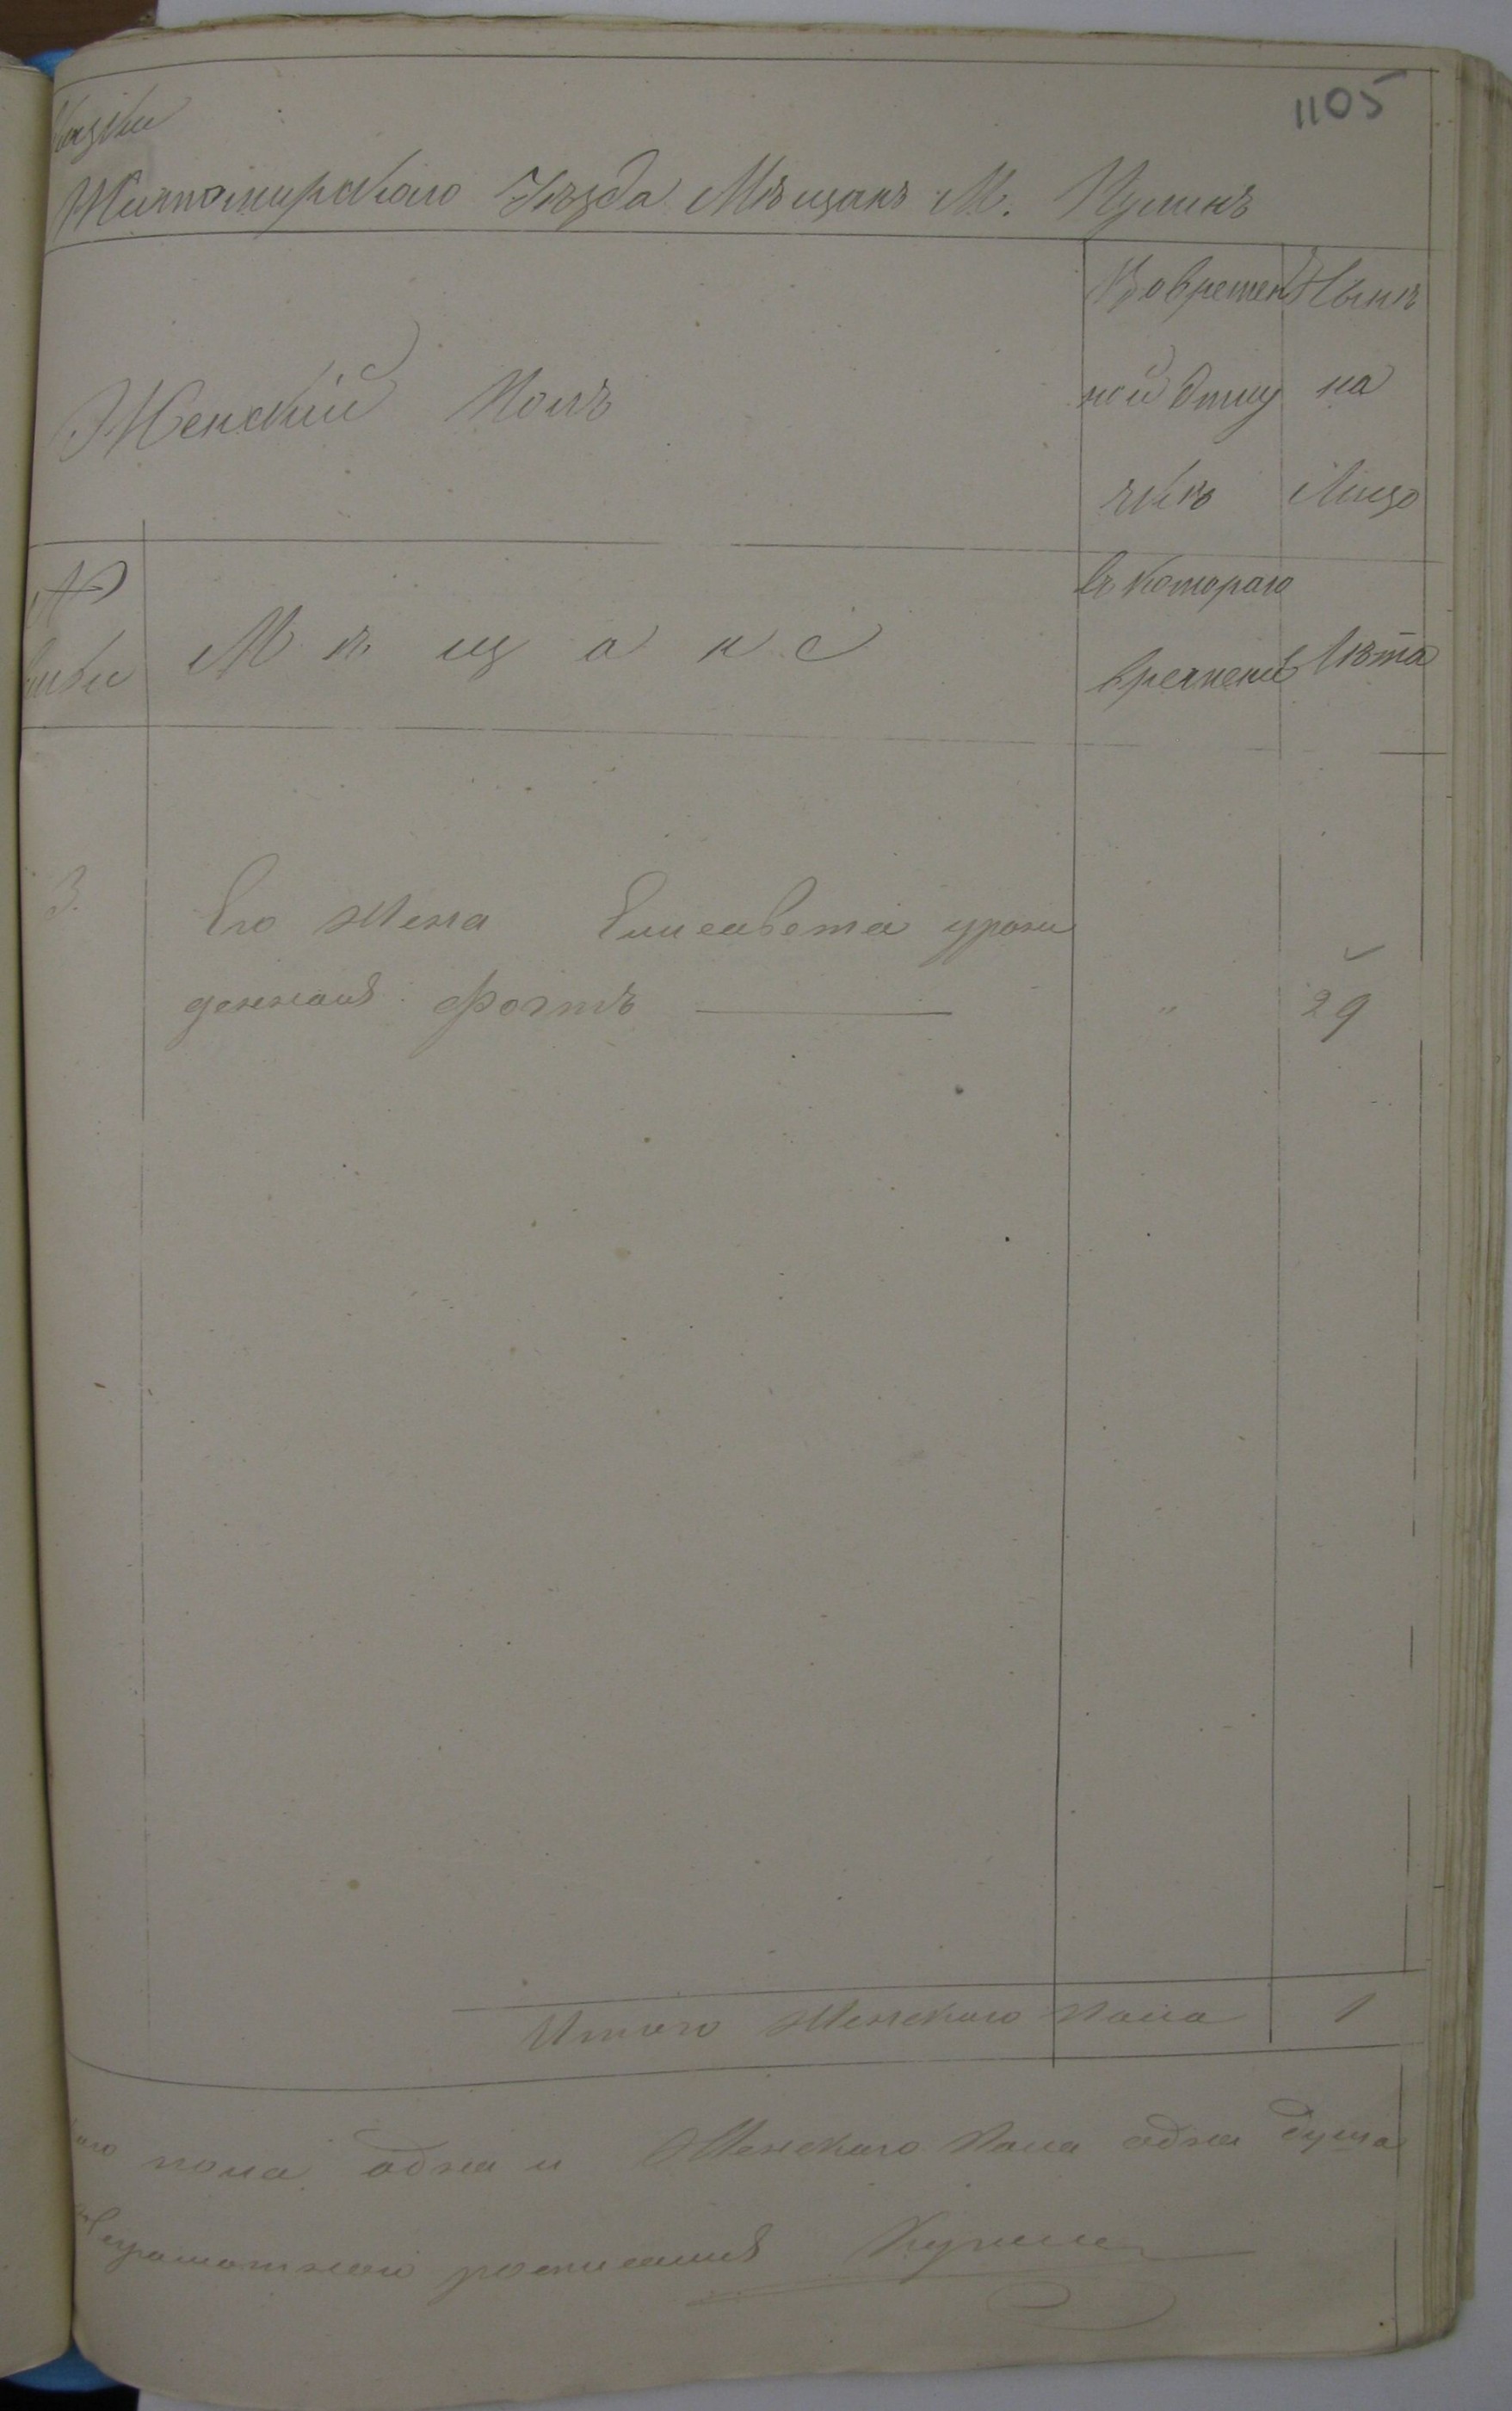 1105
Житомирскаго Уѣзда Мѣщанъ М. Пулинъ
Женскій Полъ
Во времен Нынѣ
ной отлу на
чкѣ Лицо
№
Мѣщане
съ котораго
времени Лѣта
3. Его жена Елисавета урож
денная Фогтъ " 29
Итого Женскаго пола 1
пола одна и Женскаго пола одна душа
неграмотной росписался